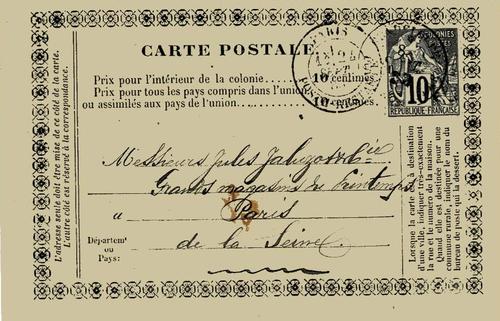 CARTE POSTALE
Prix pour l'intérieur de la colonie 10 centimes
Prix pour tous les pays compris dans l'union
ou assimilés aux pays de l'union 10 centimes
PARIS
COLONIES
POSTES
10c
REPUBLIQUE FRANÇAISE
L'adresse seule doit être mise de ce côté de la carte.
L'autre côté est réservé à la correspondance.
Messieurs Jules Jaluzot & Cie
Grands magasins du Printemps
à Paris
Départemt
ou
Pays:
de la Seine
Lorsque la carte est à destination
d'une ville, indiquer très-exactement
la rue et le numéro de la maison.
Quand elle est destinée pour une
commune rurale, indiquer le nom du
bureau de poste qui la dessert.